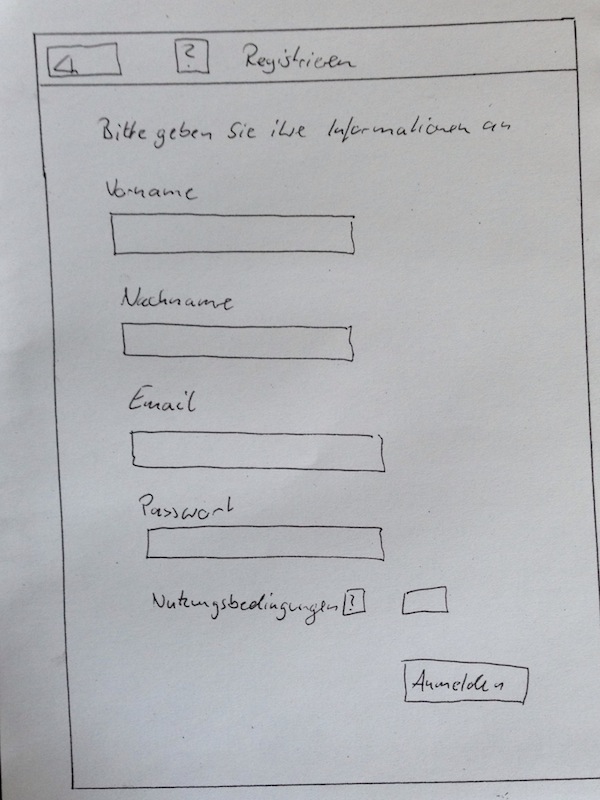 ? Registrieren
Bitte geben Sie ihre Informationen an
Vorname
Nachname
Email
Passwort
Nutzungsbedingungen ?
Anmelden